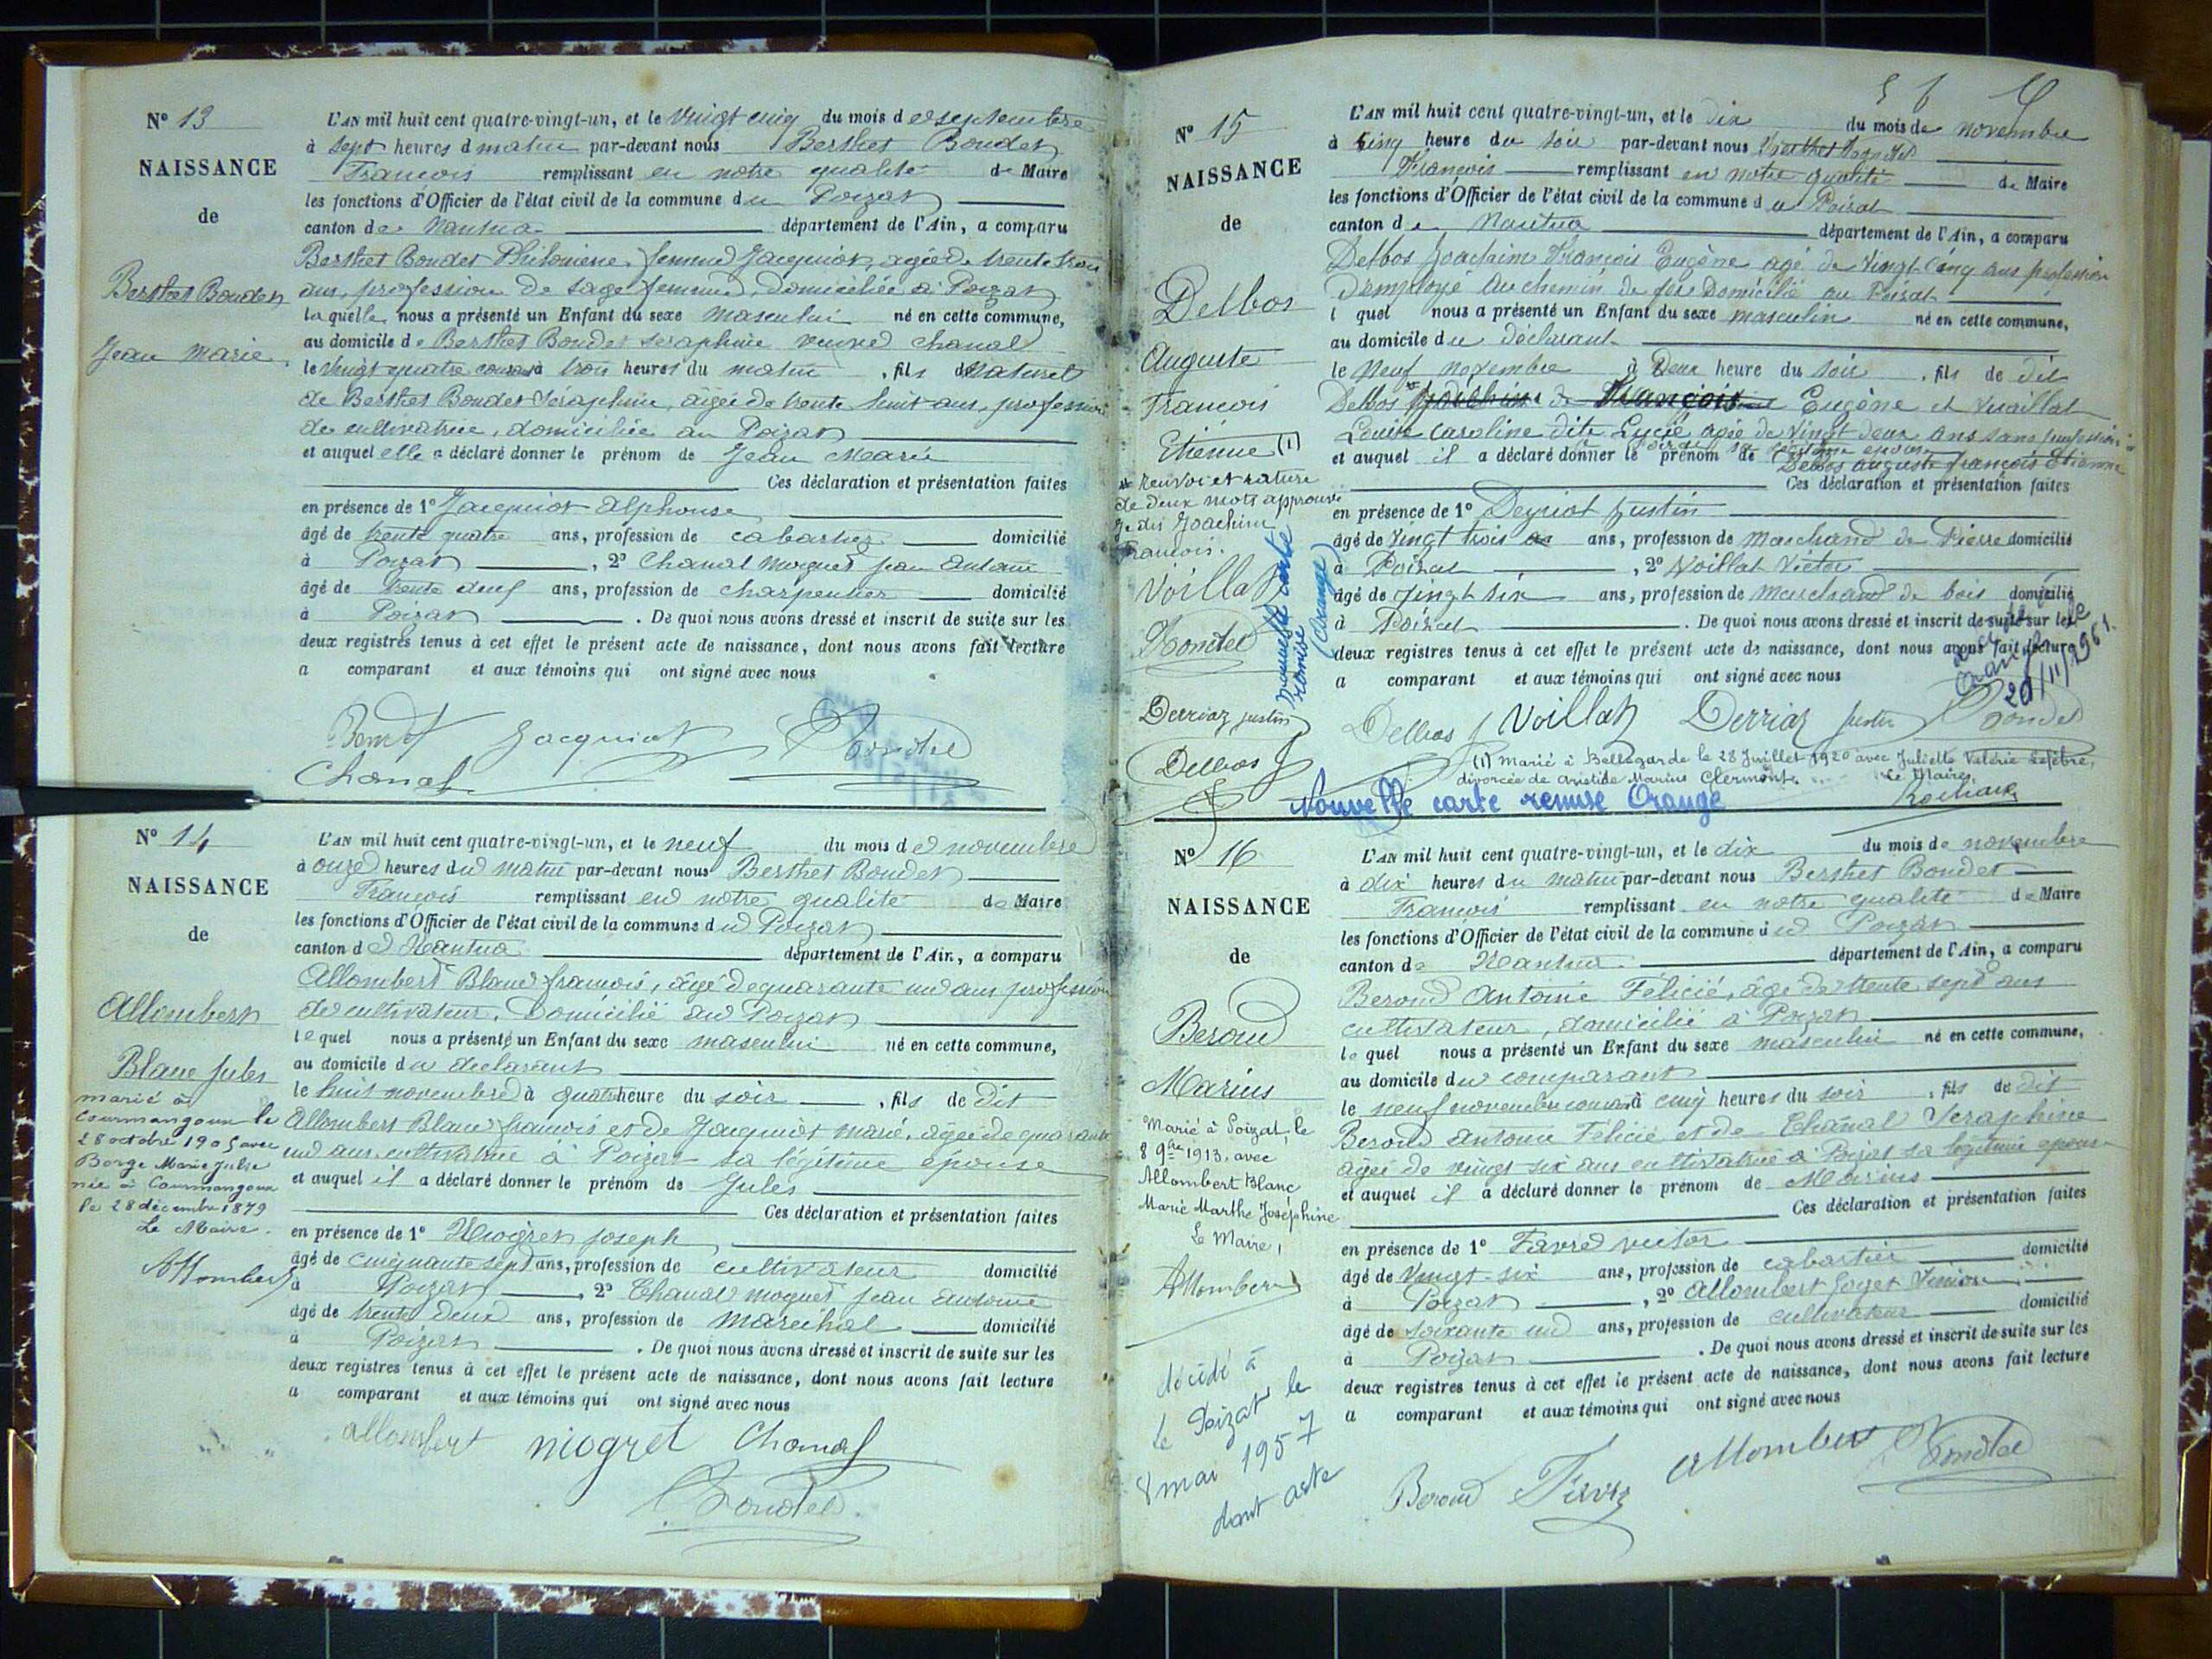 N° 13
NAISSANCE
de
Berthet Bondet
Jean Marie
L'AN mil huit cent quatre-vingt-un, et le vingt cinq du mois de septembre
à sept heures d matin par-devant nous Berthet Bondet
François remplissant en notre qualité de Maire
les fonctions d'Officier de l'état civil de la commune du Poizat
canton de Nantua département de l'Ain, a comparu
Berthet Bondet Philomène femme Jacquiot, agée de trente trois
ans, profession de sage femme, domiciliée à Poizat
laquelle nous a présenté un Enfant du sexe masculin né en cette commune,
au domicile de Berthet Bondet Séraphine veuve Chanal
le vingt quatre courant à trois heures du matin, fils Naturel
de Berthet Bondet Séraphine, agée de trente huit ans, profession
de cultivatrice, domiciliée au Poizat
et auquel elle a déclaré donner le prénom de Jean Marie
Ces déclaration et présentation faites
en présence de 1° Jacquiot Alphonse
âgé de trente quatre ans, profession de cabartier domicilié
à Poizat, 2° Chanal Moguet Jean Antoine
âgé de trente deuf ans, profession de charpentier domicilié
à Poizat. De quoi nous avons dressé et inscrit de suite sur les
deux registres tenus à cet effet le présent acte de naissance, dont nous avons fait lecture
a comparant et aux témoins qui ont signé avec nous
Jacquiot
Chanal
N° 14
NAISSANCE
de
Allombert
Blanc Jules
marié à
Courmangoux le
28 octobre 1905 avec
Borge Marie Julie
née à Courmangoux
le 28 décembre 1879
Le Maire.
Allombert
L'AN mil huit cent quatre-vingt-un, et le neuf du mois de novembre
à onze heures du matin par-devant nous Berthet Bondet
François remplissant en notre qualité de Maire
les fonctions d'Officier de l'état civil de la commune du Poizat
canton de Nantua département de l'Ain, a comparu
Allombert Blanc françois, âgé de quarante un ans profession
de cultivateur. Domicilié au Poizat
lequel nous a présenté un Enfant du sexe masculin né en cette commune,
au domicile du déclarant
le huit novembre à quatre heure du soir, fils de dit
Allombert Blanc françois et de Jacquiot Marie, agée de quarante
un ans cultivatrice à Poizat sa légitime épouse
et auquel il a déclaré donner le prénom de Jules
Ces déclaration et présentation faites
en présence de 1° Niogret Joseph
âgé de cinquante sept ans, profession de cultivateur domicilié
à Poizat, 2° Chanal Moguet Jean Antoine
âgé de trente deux ans, profession de maréchal domicilié
à Poizat. De quoi nous avons dressé et inscrit de suite sur les
deux registres tenus à cet effet le présent acte de naissance, dont nous avons fait lecture
a comparant et aux témoins qui ont signé avec nous
allombert niogret Chanal
Bondet
N° 15
NAISSANCE
de
Delbos
Auguste
François
Etienne (1)
Renvoi et rature
de deux mots approuvé
je dis Joachim
François.
Voillat
Bondet
Derriaz Justin
Delbos J
nouvelle carte
remise
Orange
L'AN mil huit cent quatre-vingt-un, et le dix du mois de novembre
à cinq heure du soir par-devant nous Berthet Bondet
François remplissant en notre qualité de Maire
les fonctions d'Officier de l'état civil de la commune du Poizat
canton de Nantua département de l'Ain, a comparu
Delbos Joachim François Eugène agé de Vingt-Cinq ans profession
D'employé Au chemin de fer Domicilié au Poizat
lquel nous a présenté un Enfant du sexe masculin né en cette commune,
au domicile du déclarant
le Neuf novembre à Deux heure du soir, fils de dit
Delbos Joachim de François Eugène et Vuaillat
Louise Caroline dite Lucie agée de Vingt deux ans sans profession
sa légitime épouse
et auquel il a déclaré donner le prénom de Delbos Auguste François Etienne
Ces déclaration et présentation faites
en présence de 1° Deyriat Justin
âgé de vingt trois ans, profession de Marchand de Pierre domicilié
à Poizat, 2° Voillat Victor
âgé de vingt six ans, profession de Marchand de bois domicilié
à Poizat. De quoi nous avons dressé et inscrit de suite sur les
deux registres tenus à cet effet le présent acte de naissance, dont nous avons fait lecture
a comparant et aux témoins qui ont signé avec nous
20/11/1961.
Delbos J Voillat Derriaz Justin Bondet
(1) Marié à Bellegarde le 28 Juillet 1920 avec Juliette Valérie Lefèbre,
divorcée de Aristide Marius Clermont. Le Maire,
Nouvelle carte remise Orange
N° 16
NAISSANCE
de
Beroud
Marius
Marié à Poizat, le
8 9bre 1913, avec
Allombert Blanc
Marie Marthe Joséphine
Le Maire,
Allombert
décédé à
le Poizat le
8 mai 1957
dont acte
L'AN mil huit cent quatre-vingt-un, et le dix du mois de novembre
à dix heures du matin par-devant nous Berthet Bondet
François remplissant en notre qualité de Maire
les fonctions d'Officier de l'état civil de la commune du Poizat
canton de Nantua département de l'Ain, a comparu
Beroud Antoine Félicié, âgé de trente sept ans
cultivateur, domicilié à Poizat
lequel nous a présenté un Enfant du sexe masculin né en cette commune,
au domicile du comparant
le neuf novembre courant à cinq heures du soir, fils de dit
Beroud Antoine Félicié et de Chanal Seraphine
agée de vingt six ans cultivatrice à Poizat sa légitime épouse
et auquel il a déclaré donner le prénom de Marius
Ces déclaration et présentation faites
en présence de 1° Favre victor
âgé de vingt-six ans, profession de cabartier domicilié
à Poizat, 2° Allombert Goget
âgé de soixante un ans, profession de cultivateur domicilié
à Poizat. De quoi nous avons dressé et inscrit de suite sur les
deux registres tenus à cet effet le présent acte de naissance, dont nous avons fait lecture
a comparant et aux témoins qui ont signé avec nous
Beroud Favre Allombert Bondet